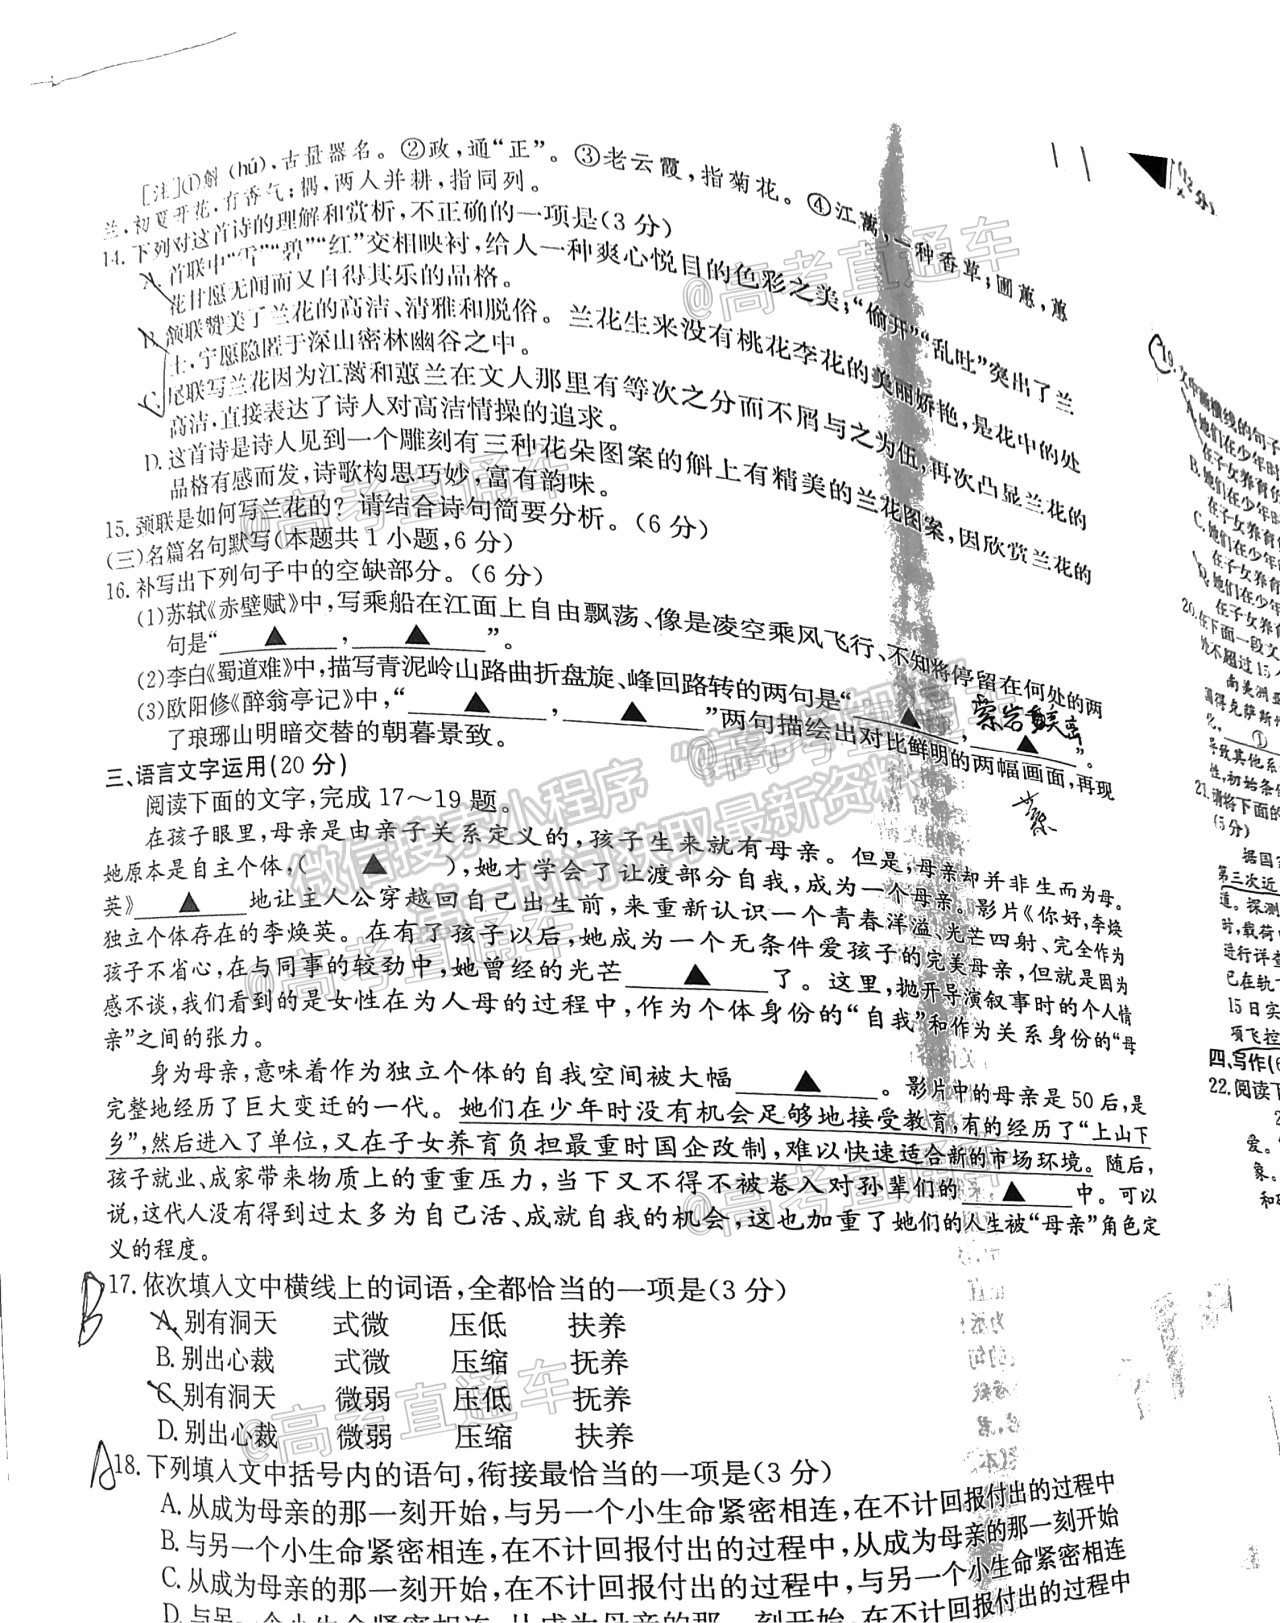 [注]①斛(hú),古量器名。②政,通“正”。③老云霞,指菊花。④江蓠,一种香草;圃蕙,蕙
兰,初夏开花,有香气;偶,两人并耕,指同列。
14.下列对这首诗的理解和赏析,不正确的一项是(3分)
A.首联中“雪”“碧”“红”交相映衬,给人一种爽心悦目的色彩之美;“偷开”“乱吐”突出了兰
花甘愿无闻而又自得其乐的品格。
B.颔联赞美了兰花的高洁、清雅和脱俗。兰花生来没有桃花李花的美丽娇艳,是花中的处
士,宁愿隐匿于深山密林幽谷之中。
C.尾联写兰花因为江蓠和蕙兰在文人那里有等次之分而不屑与之为伍,再次凸显兰花的
高洁,直接表达了诗人对高洁情操的追求。
D.这首诗是诗人见到一个雕刻有三种花朵图案的斛上有精美的兰花图案,因欣赏兰花的
品格有感而发,诗歌构思巧妙,富有韵味。
15.颈联是如何写兰花的?请结合诗句简要分析。(6分)
(三)名篇名句默写(本题共1小题,6分)
16.补写出下列句子中的空缺部分。(6分)
(1)苏轼《赤壁赋》中,写乘船在江面上自由飘荡、像是凌空乘风飞行、不知将停留在何处的两
句是“▲,▲”。
(2)李白《蜀道难》中,描写青泥岭山路曲折盘旋、峰回路转的两句是“▲,▲”。
(3)欧阳修《醉翁亭记》中,“▲,▲”两句描绘出对比鲜明的两幅画面,再现
了琅琊山明暗交替的朝暮景致。
三、语言文字运用(20分)
阅读下面的文字,完成17~19题。
在孩子眼里,母亲是由亲子关系定义的,孩子生来就有母亲。但是,母亲却并非生而为母。
她原本是自主个体,(▲),她才学会了让渡部分自我,成为一个母亲。影片《你好,李焕
英》▲地让主人公穿越回自己出生前,来重新认识一个青春洋溢、光芒四射、完全作为
独立个体存在的李焕英。在有了孩子以后,她成为一个无条件爱孩子的完美母亲,但就是因为
孩子不省心,在与同事的较劲中,她曾经的光芒▲了。这里,抛开导演叙事时的个人情
感不谈,我们看到的是女性在为人母的过程中,作为个体身份的“自我”和作为关系身份的“母
亲”之间的张力。
身为母亲,意味着作为独立个体的自我空间被大幅▲。影片中的母亲是50后,是
完整地经历了巨大变迁的一代。她们在少年时没有机会足够地接受教育,有的经历了“上山下
乡”,然后进入了单位,又在子女养育负担最重时国企改制,难以快速适合新的市场环境。随后,
孩子就业、成家带来物质上的重重压力,当下又不得不被卷入对孙辈们的▲中。可以
说,这代人没有得到过太多为自己活、成就自我的机会,这也加重了她们的人生被“母亲”角色定
义的程度。
B
17.依次填入文中横线上的词语,全都恰当的一项是(3分)
A.别有洞天 式微 压低 扶养
B.别出心裁 式微 压缩 抚养
C.别有洞天 微弱 压低 抚养
D.别出心裁 微弱 压缩 扶养
A
18.下列填入文中括号内的语句,衔接最恰当的一项是(3分)
A.从成为母亲的那一刻开始,与另一个小生命紧密相连,在不计回报付出的过程中
B.与另一个小生命紧密相连,在不计回报付出的过程中,从成为母亲的那一刻开始
C.从成为母亲的那一刻开始,在不计回报付出的过程中,与另一个小生命紧密相连
D.与另一个小生命紧密相连,从成为母亲的那一刻开始,在不计回报付出的过程中
(12分)
19.文中画横线的句子
A.她们在少年时
在子女养育负
B.她们在少年时
在子女养育负
C.她们在少年时
在子女养育
D.她们在少年时
在子女养育
20.在下面一段文
处不超过15个
南美洲亚
①
导致其他系
性,初始条件
21.请将下面的
(5分)
据国
第三次近
道。探测
时,载荷
进行评查
已在轨
15日实
项飞控
四、写作(6
22.阅读下
爱。
象。
@高考直通车
@高考直通车
@高考直通车
@高考直通车
@高考直通车
@高考直通车
微信搜索小程序“高考直通车”
第一时间获取最新资料